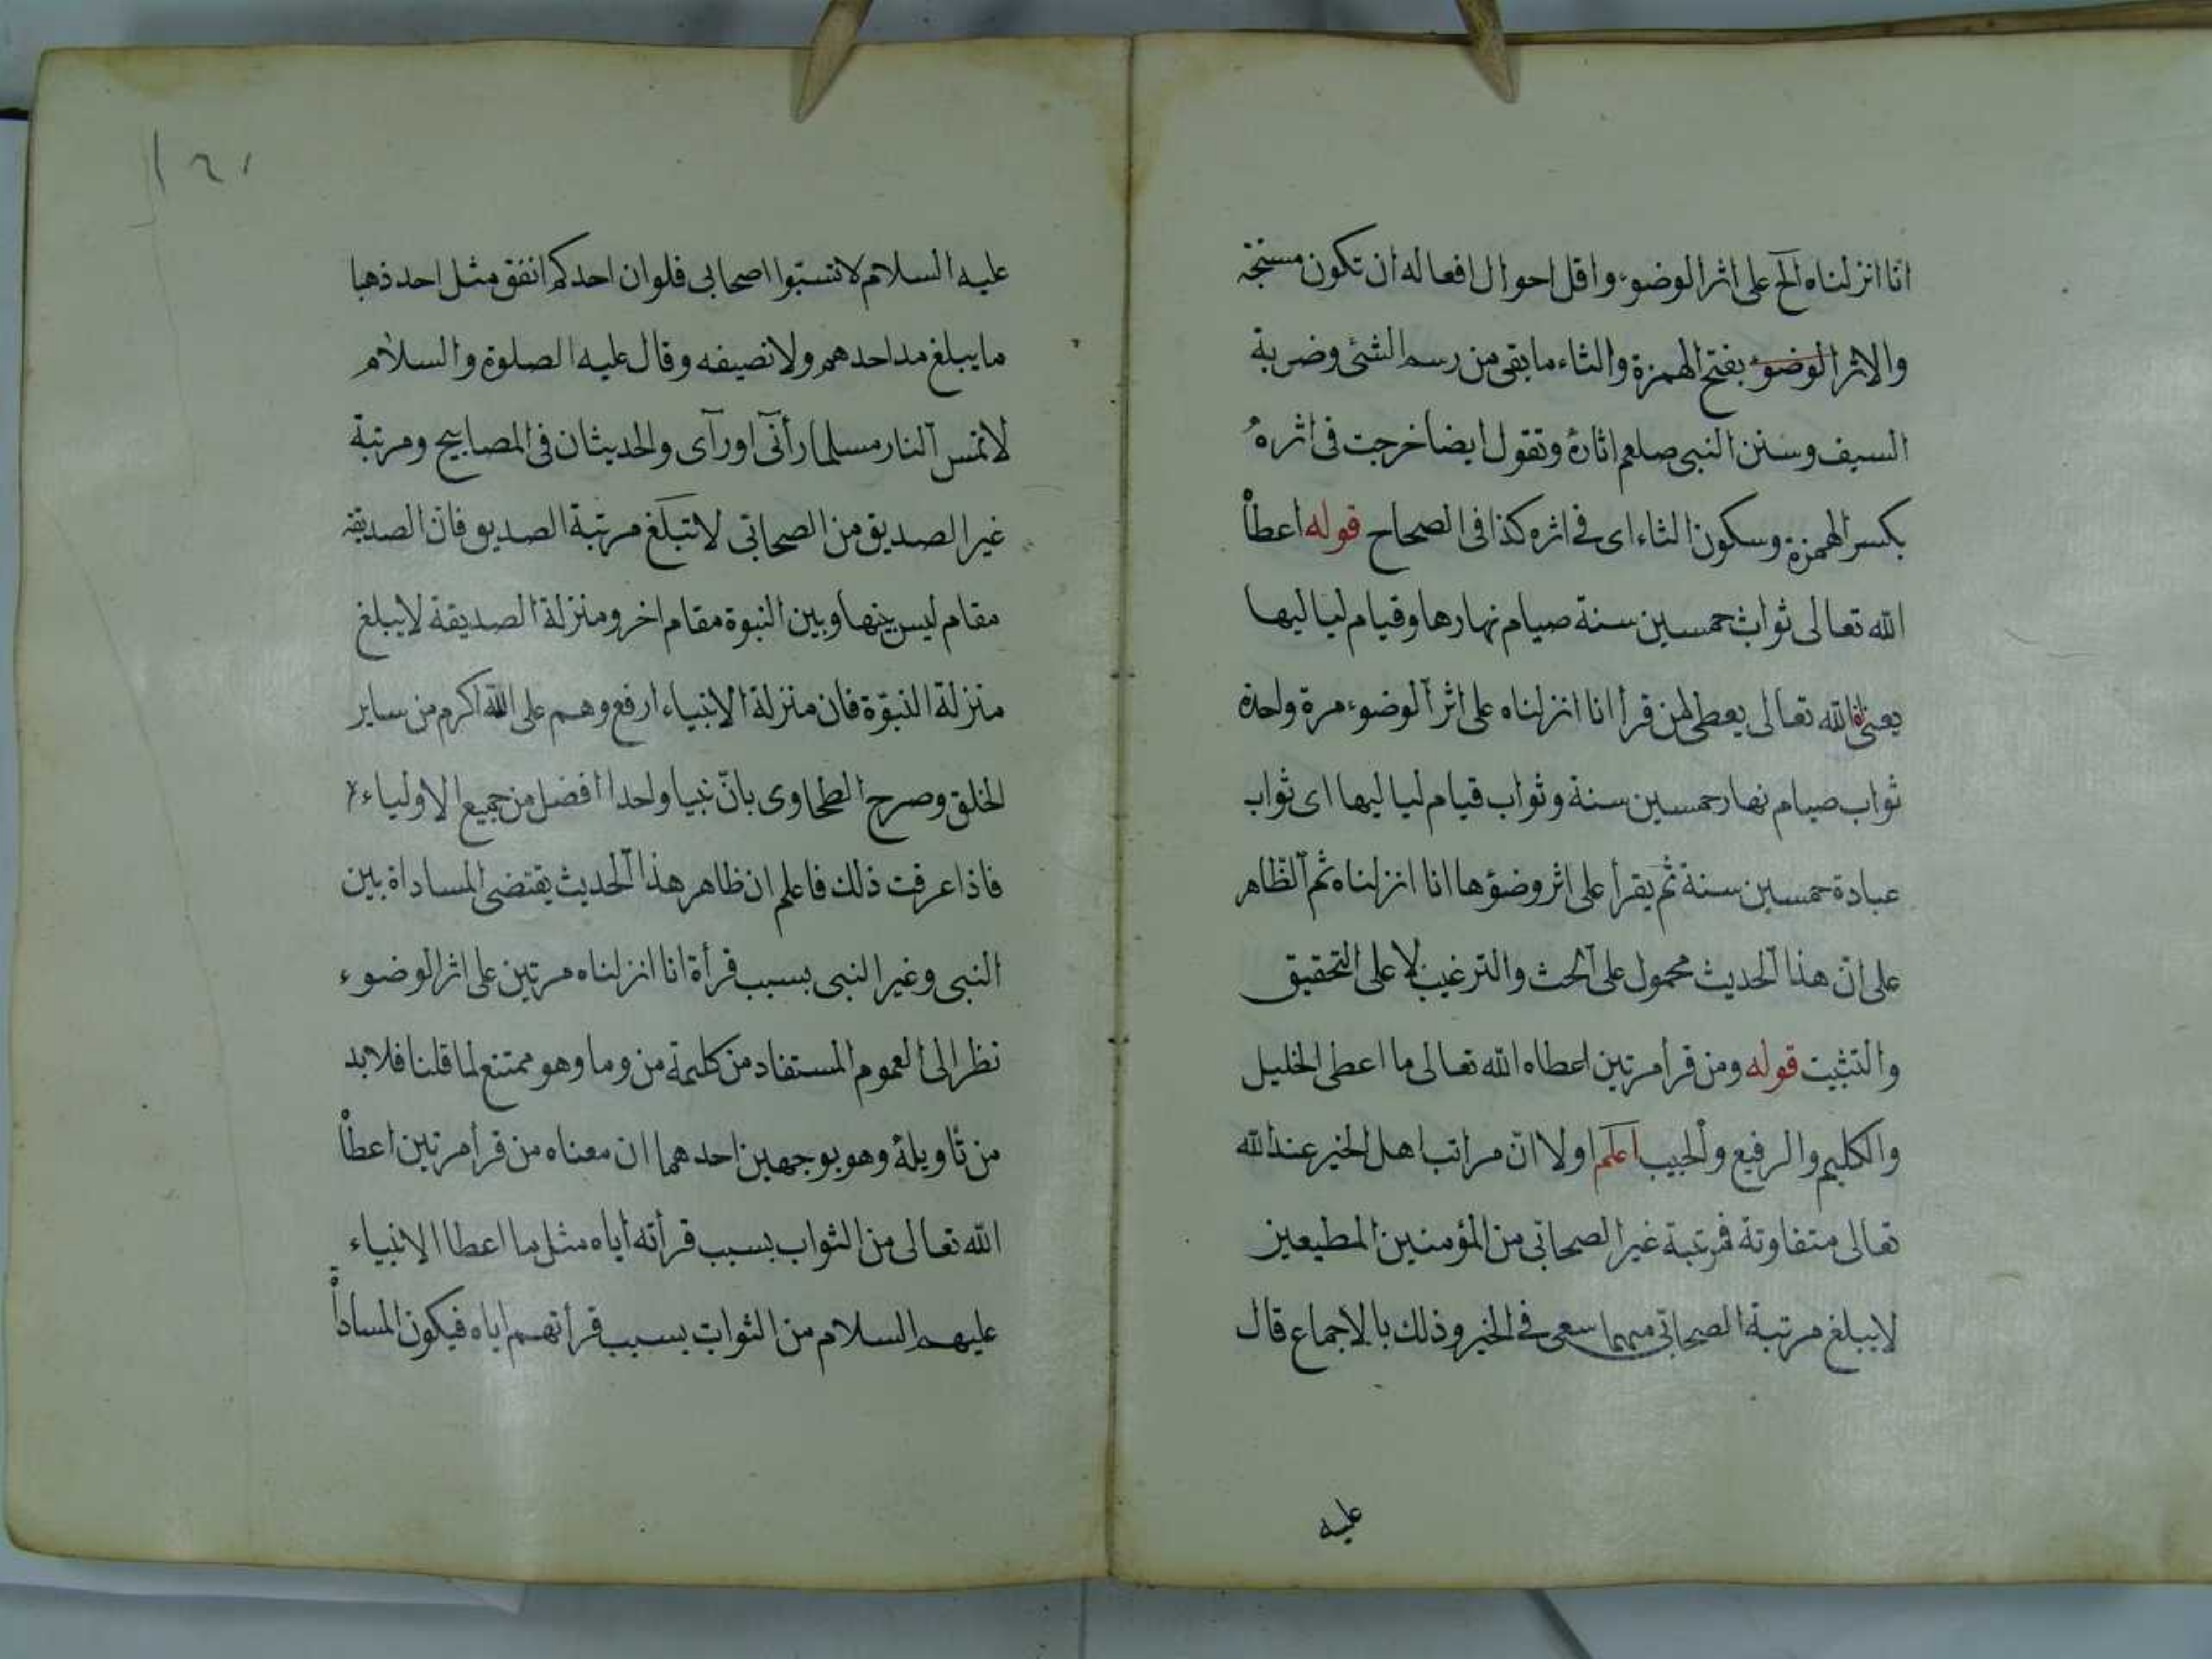 انا انزلناه الخ على اثر الوضوء واقل احوال افعاله ان تكون مستحبة
والاثر الوضوء بفتح الهمزة والثاء ما بقى من رسم الشئ وضربة
السيف وسنن النبى صلعم اثاره وتقول ايضا خرجت فى اثره
بكسر الهمزة وسكون الثاء اى فى اثره كذا فى الصحاح قوله اعطاه
الله تعالى ثواب خمسين سنة صيام نهارها وقيام لياليها
يعنى ان الله تعالى يعطى لمن قرأ انا انزلناه على اثر الوضوء مرة واحدة
ثواب صيام نهار خمسين سنة وثواب قيام لياليها اى ثواب
عبادة خمسين سنة ثم يقرأ على اثر وضوؤها انا انزلناه ثم الظاهر
على ان هذا الحديث محمول على الحث والترغيب لا على التحقيق
والتثبيت قوله ومن قرأ مرتين اعطاه الله تعالى ما اعطى الخليل
والكليم والرفيع والحبيب اعلم اولا ان مراتب اهل الخير عند الله
تعالى متفاوتة فمرتبة غير الصحابى من المؤمنين المطيعين
لا يبلغ مرتبة الصحابى مهما سعى فى الخير وذلك بالاجماع قال
عليه
عليه السلام لا تسبوا اصحابى فلو ان احدكم انفق مثل احد ذهبا
ما يبلغ مد احدهم ولا نصيفه وقال عليه الصلوة والسلام
لا تمس النار مسلما رأنى او رآى والحديثان فى المصابيح ومرتبة
غير الصديق من الصحابى لا تبلغ مرتبة الصديق فان الصديقة
مقام ليس بينها وبين النبوة مقام اخر ومنزلة الصديقة لا يبلغ
منزلة النبوة فان منزلة الانبياء ارفع وهم على الله اكرم من ساير
الخلق وصرح الطحاوى بان نبيا واحدا افضل من جميع الاولياء
فاذا عرفت ذلك فاعلم ان ظاهر هذا الحديث يقتضى المساداة بين
النبى وغير النبى بسبب قرأة انا انزلناه مرتين على اثر الوضوء
نظر الى العموم المستفاد من كلمة من وما وهو ممتنع لما قلنا فلا بد
من تأويله وهو بوجهين احدهما ان معناه من قرأ مرتين اعطاه
الله تعالى من الثواب بسبب قرأته اياه مثل ما اعطا الانبياء
عليهم السلام من الثواب بسبب قرأتهم اياه فيكون المساداة